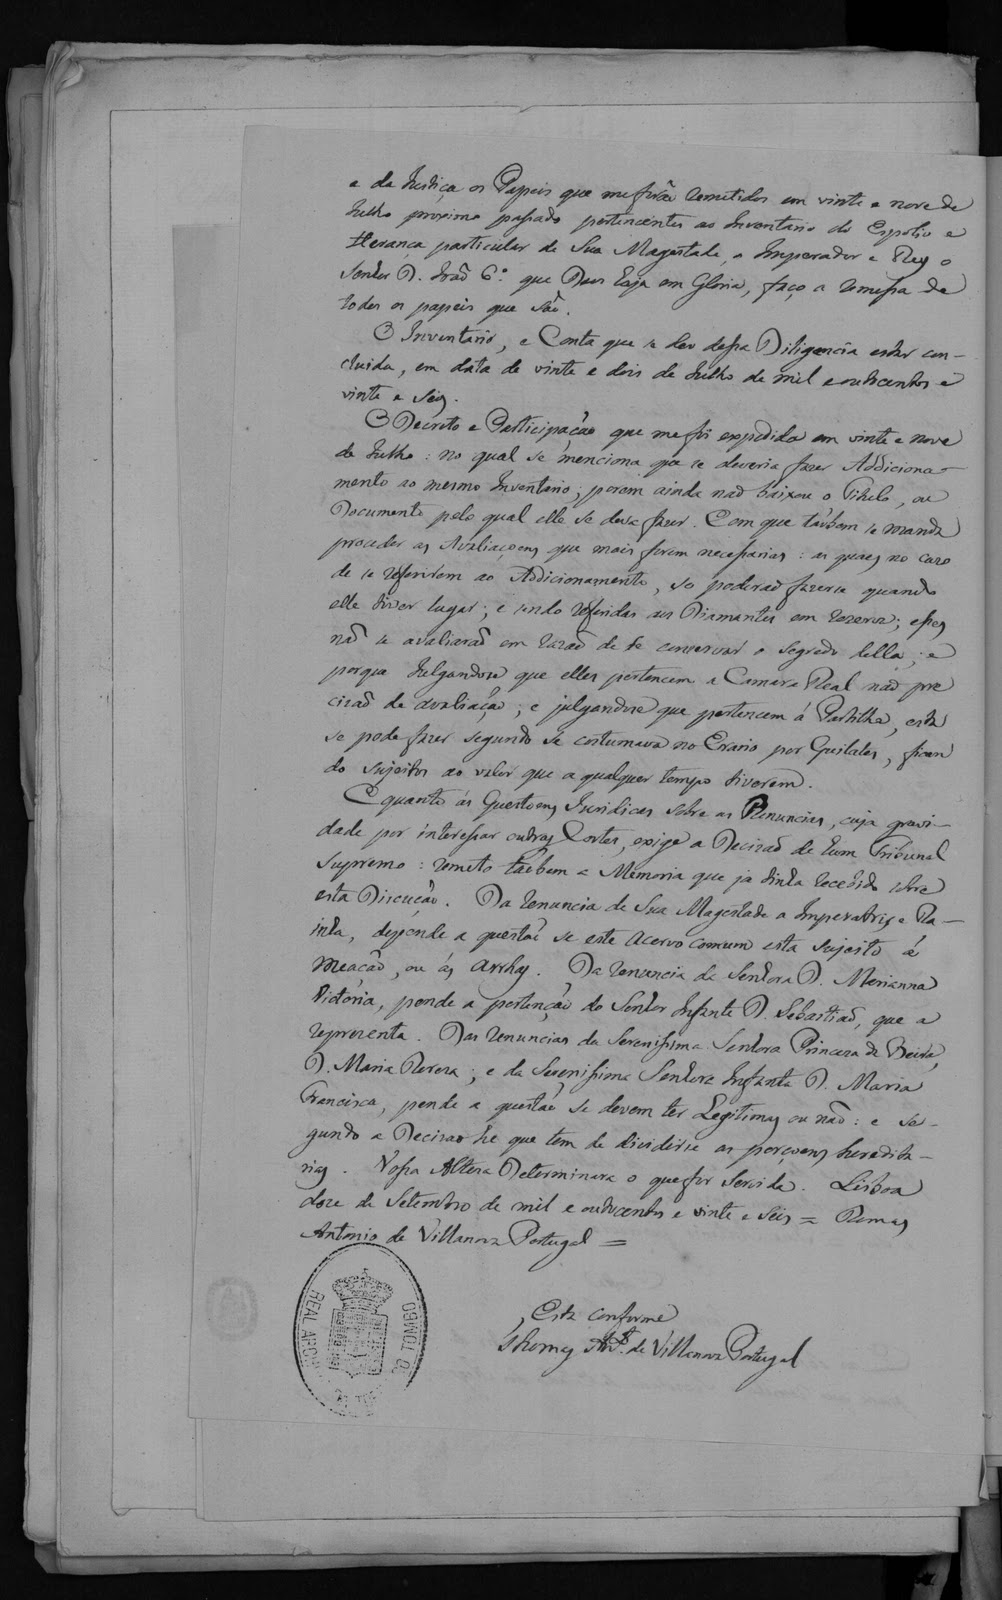 e da Justiça os Papeis que me forão remetidos em vinte e nove de
Julho proximo passado pertencentes ao Inventario do Espolio e
Herança particular de Sua Magestade, o Imperador e Rey o
Senhor D. João 6º. que Deus haja em Gloria, faço a remessa de
todos os papeis que são.
O Inventario, e Conta que se deu dessa Diligencia estar con-
cluida, em data de vinte e dois de Julho de mil e outocentos e
vinte e seis.
O Decreto e Participação que me foi expedida em vinte e nove
de Julho: no qual se menciona que se deveria fazer Addiciona-
mento ao mesmo Inventario; porem ainda não baixou o Titulo, ou
Documento pelo qual elle se deva fazer. Com que tãobem se manda
proceder as Avaliaçoens que mais forem necessarias: as quaes no caso
de se referirem ao Addicionamento, so poderaõ fazerse quando
elle tiver lugar; e sendo referidas aos Diamantes em reserva; esses
não se avaliaraõ em razaõ de se conservar o segredo della; e
porque Julgandose que elles pertencem a Camara Real naõ pre
cizaõ de avaliação; e julgandose que pertencem á Partilha, esta
se pode fazer segundo se costumava no Erario por Quilates, fican
do sujeitos ao valor que a qualquer tempo tiverem.
E quanto ás Questoens Juridicas sobre as Renuncias, cuja gravi-
dade por interessar outras Cortes, exige a Decizaõ de hum Tribunal
Supremo: remeto tãobem a Memoria que ja tinha recebido sobre
esta Discução. Da renuncia de Sua Magestade a Imperatriz e Ra-
inha, depende a questaõ se este Acervo comum esta sujeito á
Meacão, ou ás Arrhas. Da renuncia da Senhora D. Marianna
Victória, pende a pertenção do Senhor Infante D. Sebastiaõ, que a
reprezenta. Das renuncias da Serenissima Senhora Princeza da Beira,
D. Maria Tereza; e da Serenissima Senhora Infanta D. Maria
Francisca, pende a questaõ se devem ter Legitimas ou não: e se-
gundo a Decizao he que tem de dividirse as porçoens heredita-
rias. Vossa Alteza Determinara o que for Servida. Lisboa
doze de Setembro de mil e outocentos e vinte e Seis = Thomas
Antonio de Villanova Portugal =
Esta conforme
Thomas Anto. de Villanova Portugal
REAL ARCH
DO TOMBO